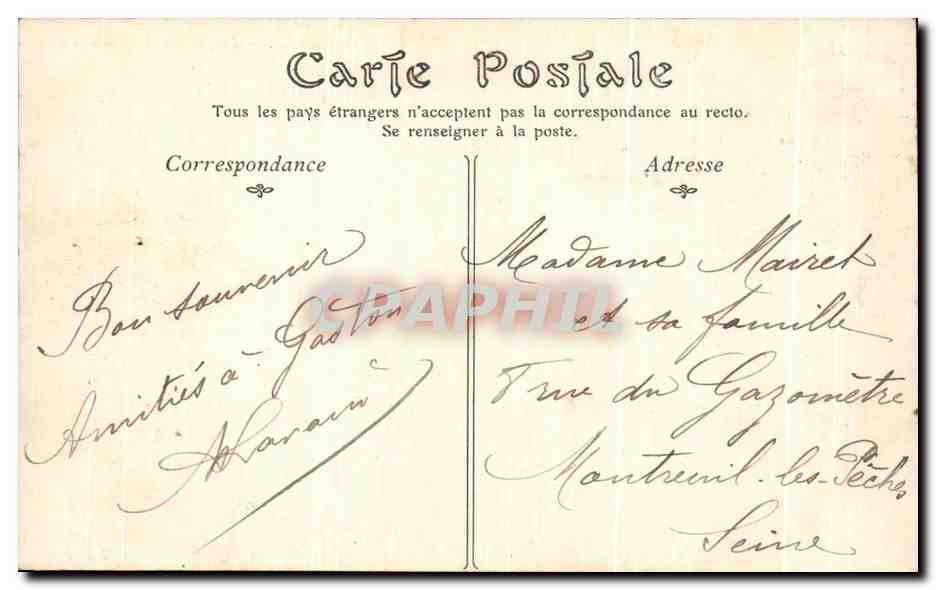 Carte Postale
Tous les pays étrangers n'acceptent pas la correspondance au recto.
Se renseigner à la poste.
Correspondance
Bon souvenir
Amitiés à Gaston
Adresse
Madame Mairet
et sa famille
rue du Gazomètre
Montreuil-les-Pêches
Seine
CPAPHIL